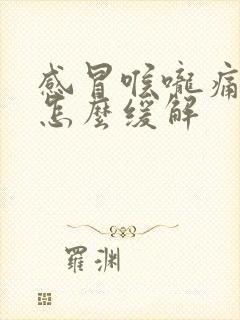 感冒喉嚨痛
怎麼緩解
羅渊